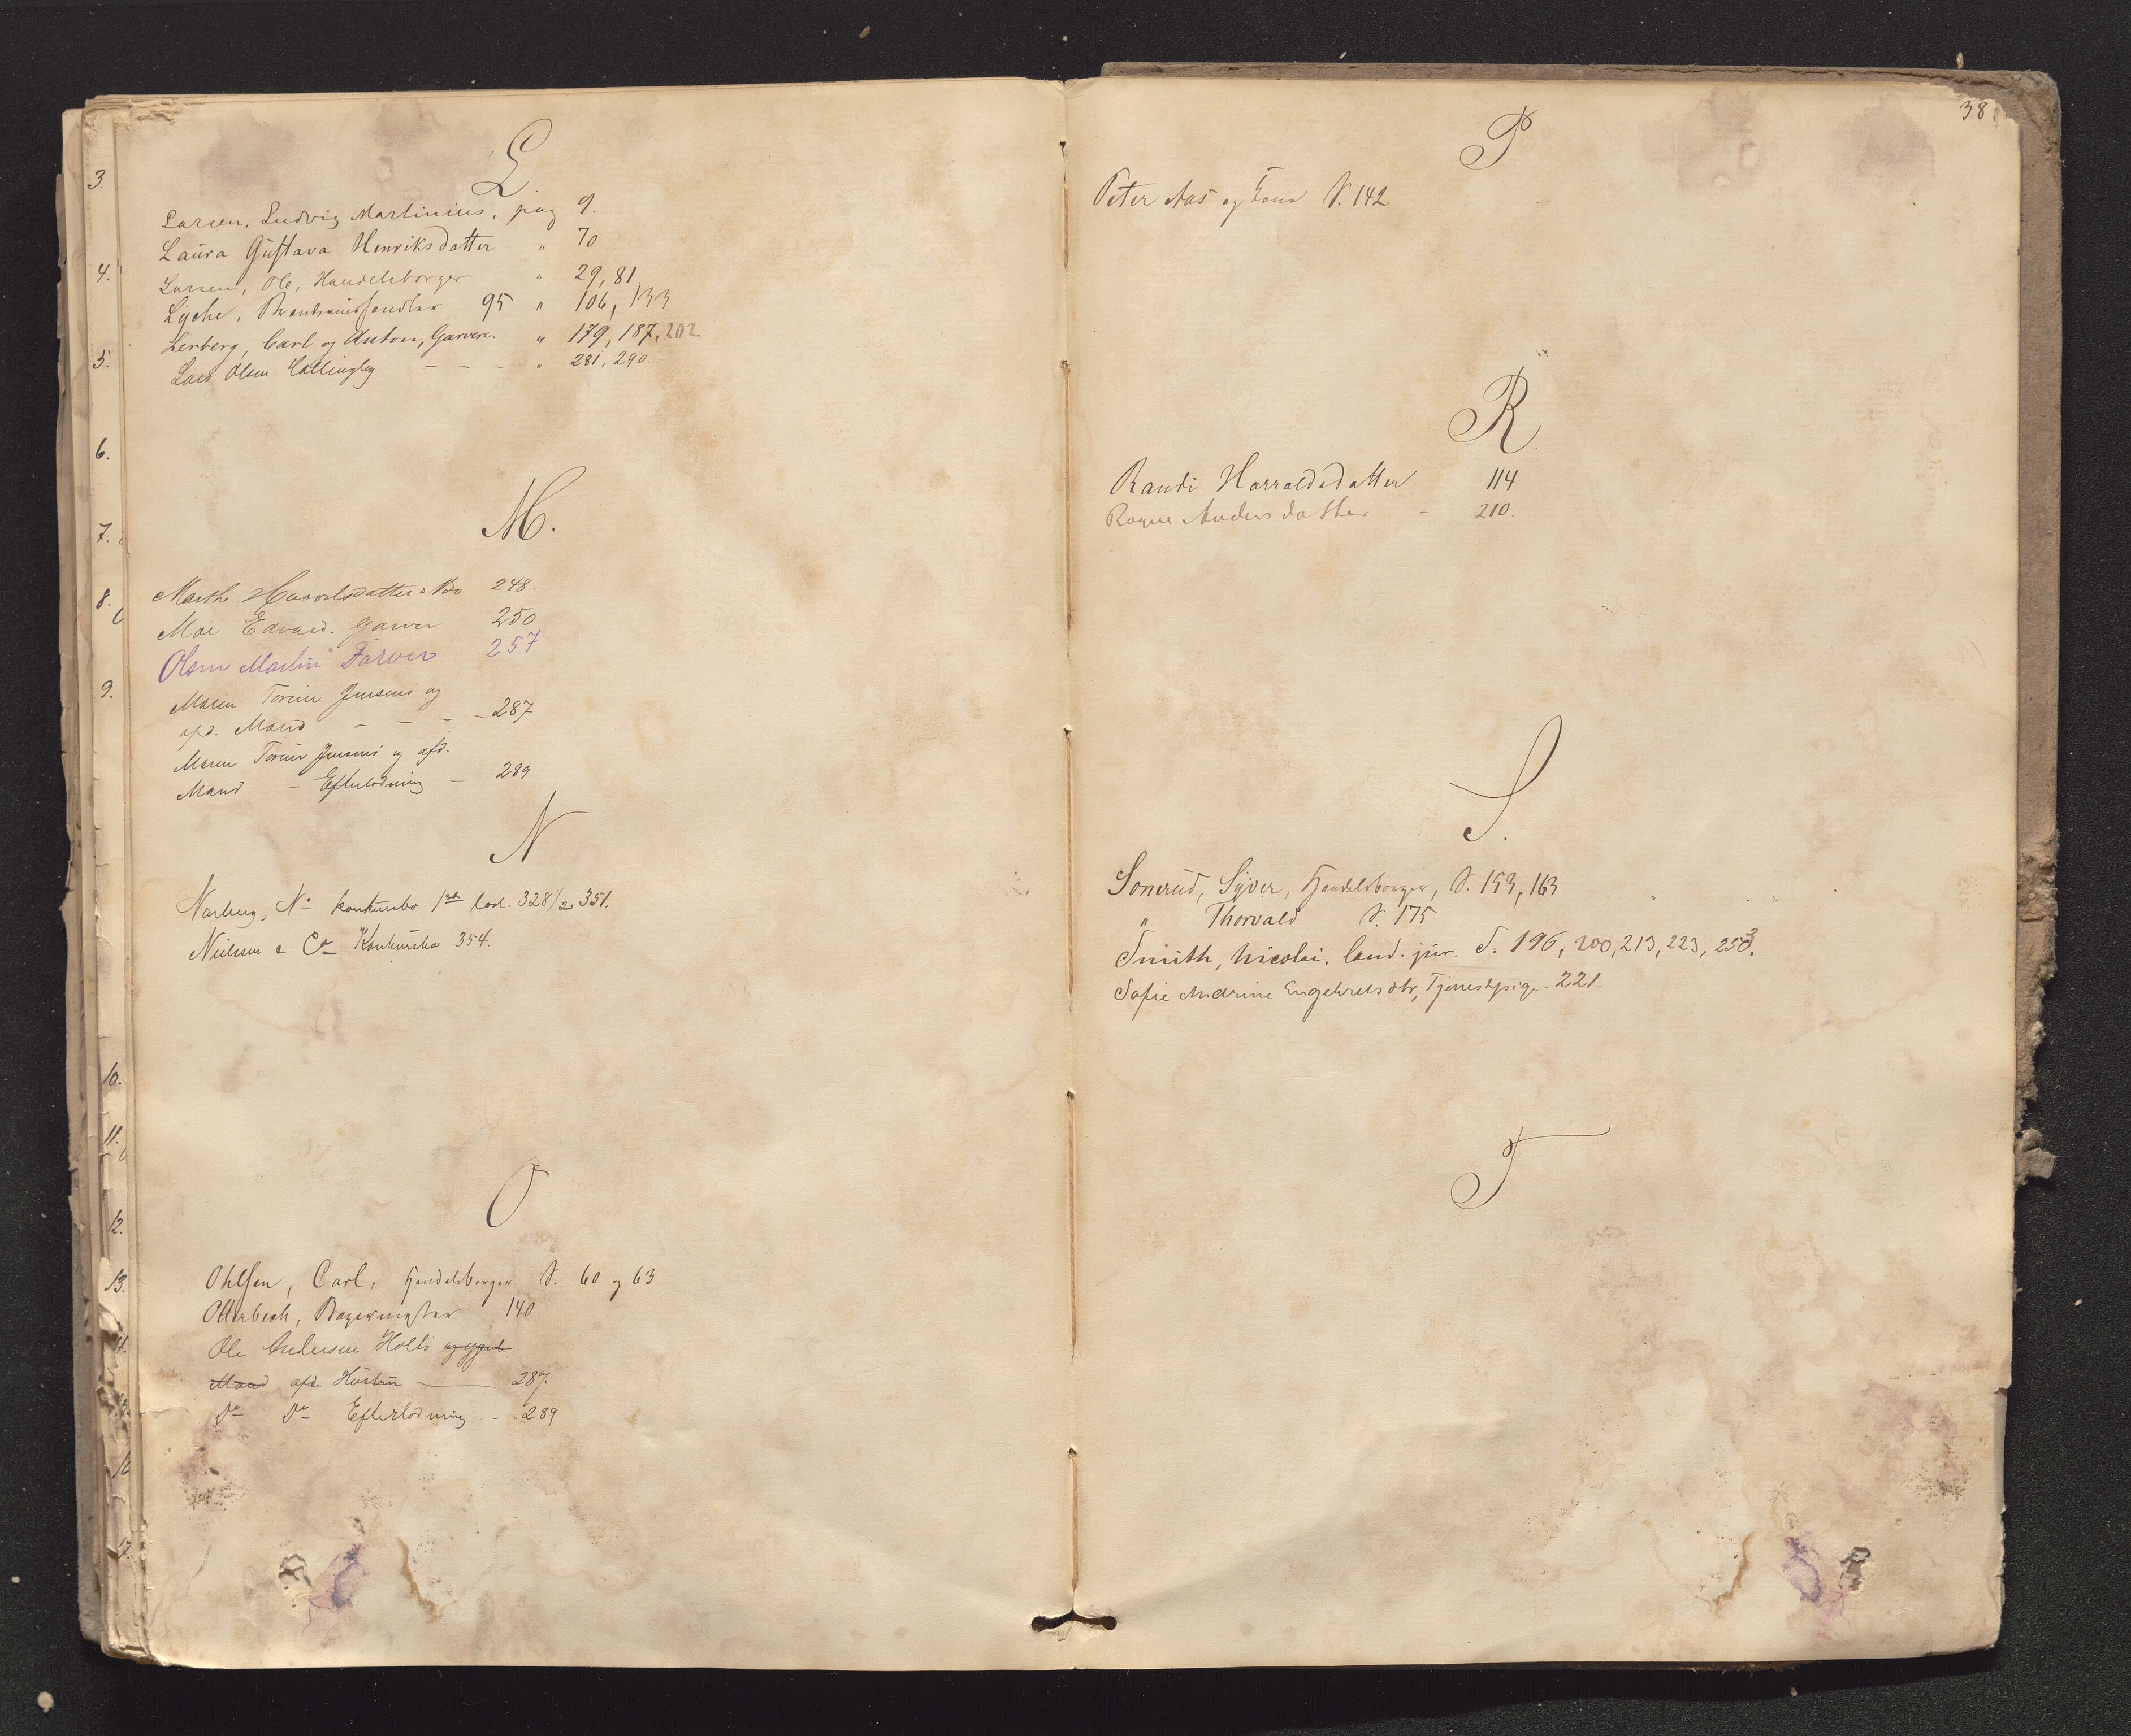 3.
4.
5.
6.
7.
8.
9.
10.
11.
12.
13.
16
17.
L
Larsen, Ludvig Martinius, pag 9.
Laura Gustava Henriksdatter " 70
Larsen, Ole, Handelsborger " 29, 81
Lyche, 95 " 106, 133
Lerberg, Carl og Anton, Garvere. " 179, 187, 202
Lars Olsen - - - " 281, 290.
M.
Marthe Bo 248.
Moe Edvard. Garver 250
Olsen Martin Farver 257
Maren Torine Jensens og
afd. Mand - - - - 287
Maren Torine Jensens og afd.
Mand - Efterlodning - 289
N
Narberg, No konkursbo 328 1/2. 351.
Nielsen & Co Konkursbo 354.
O
Ohlsen, Carl, Handelsborger S. 60 og 63
Otterbech, Bagermester 140
Ole Andersen Holts
Mand afd. Hustru 287.
Do Do Efterlodning - . 289
38.
P
Peter Aas og Kone S. 142
R.
Randi Harraldsdatter 114
Ragne Andersdatter - 210.
S.
Sonerud, Syver, Handelsborger, S. 153, 163
" Thorvald S. 175
Smith, Nicolai. Cand. jur. S. 196, 200, 213, 223, 253.
Sofie Andrine Engebretsdtr, Tjenestepige. 221.
T